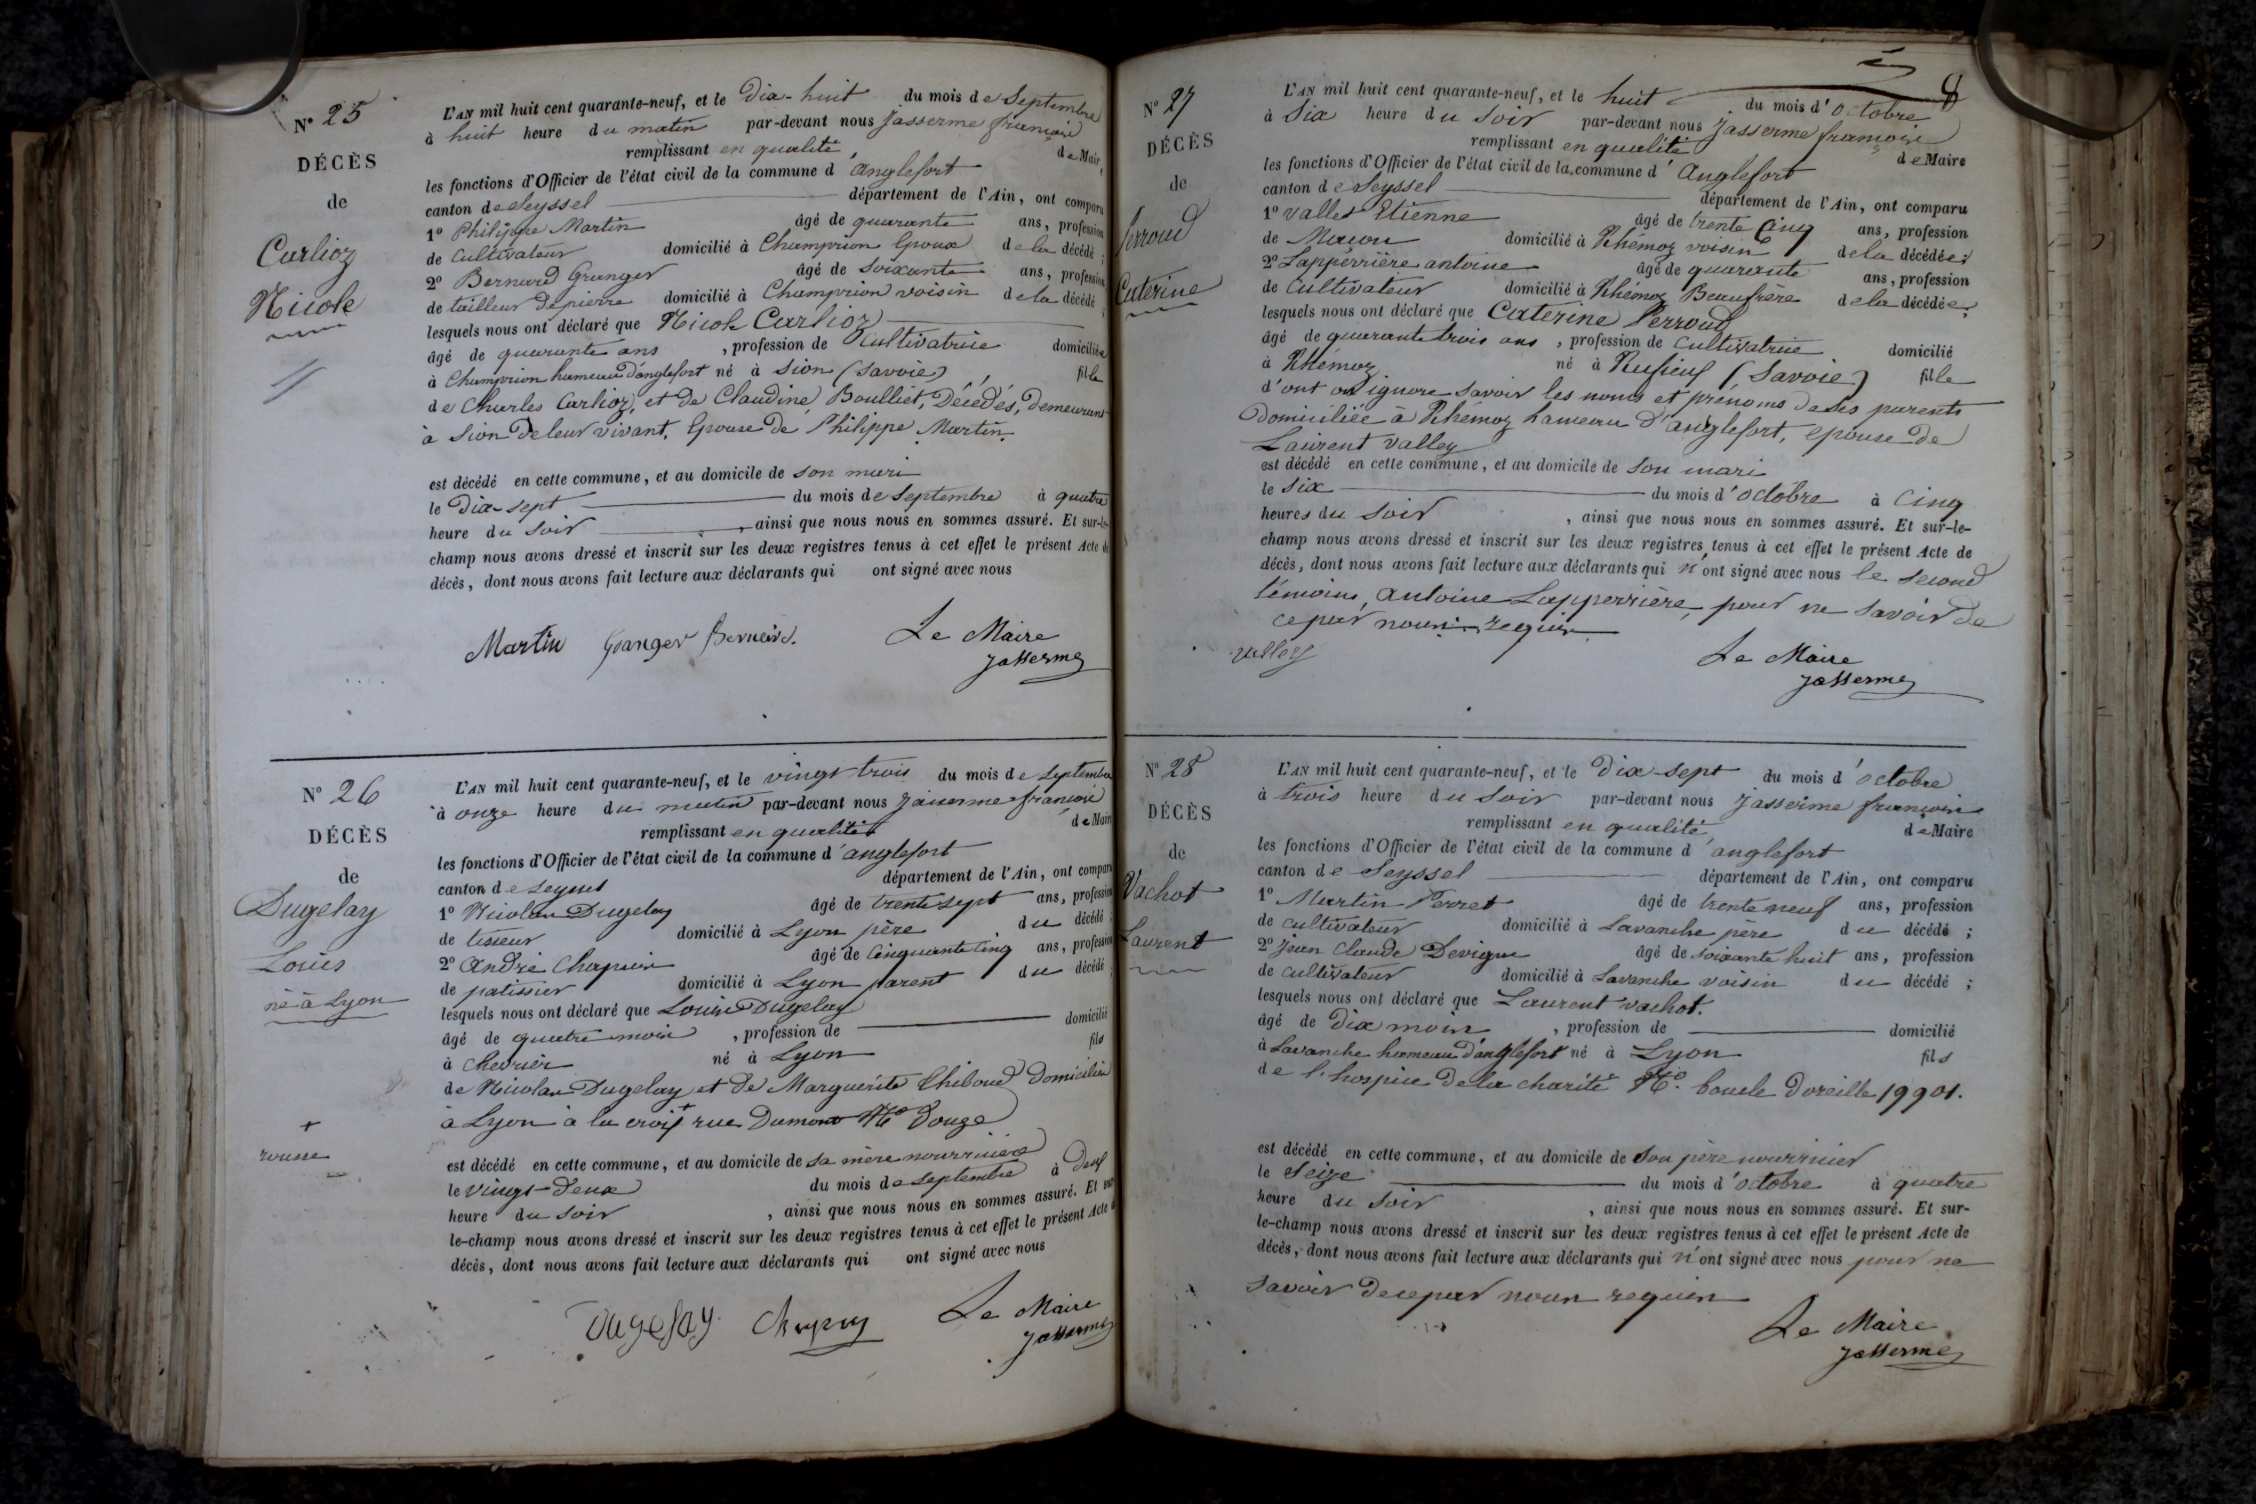 N° 25
DÉCÈS
de
Carlioz
Nicole
L'AN mil huit cent quarante-neuf, et le Dix-huit du mois de Septembre
à huit heure du matin par-devant nous Jasserme françois
remplissant en qualité de Mair
les fonctions d'Officier de l'état civil de la commune d'anglefort
canton de Seyssel département de l'Ain, ont comparu
1° Philippe Martin âgé de quarante ans, profession
de Cultivateur domicilié à Champrion Epoux de la décédé ;
2° Bernard Granger âgé de Soixante ans, profession
de tailleur de pierre domicilié à Champrion voisin de la décédé ;
lesquels nous ont déclaré que Nicole Carlioz
âgé de quarante ans, profession de Cultivatrice domiciliée
à Champrion hameau d'anglefort né à Sion (Savoie), fille
de Charles Carlioz, et de Claudine Boulliet, Décédés, demeurant
à Sion de leur vivant. Epouse de Philippe Martin.
est décédé en cette commune, et au domicile de son mari
le Dix-sept du mois de Septembre à quatre
heure du Soir, ainsi que nous nous en sommes assuré. Et sur-le-
champ nous avons dressé et inscrit sur les deux registres tenus à cet effet le présent Acte de
décès, dont nous avons fait lecture aux déclarants qui ont signé avec nous
Martin Granger Bernard. Le Maire
Jasserme
N° 26
DÉCÈS
de
Dugelay
Louis
né à Lyon
L'AN mil huit cent quarante-neuf, et le vingt-trois du mois de Septembre
à onze heure du matin par-devant nous Jasserme françois
remplissant en qualité de Mair
les fonctions d'Officier de l'état civil de la commune d'anglefort
canton de Seyssel département de l'Ain, ont comparu
1° Nicolas Dugelay âgé de trente sept ans, profession
de tisseur domicilié à Lyon père du décédé ;
2° andré Chapuis âgé de Cinquante Cinq ans, profession
de patissier domicilié à Lyon parent du décédé ;
lesquels nous ont déclaré que Louis Dugelay
âgé de quatre mois, profession de domicilié
à Chevrier né à Lyon fils
de Nicolas Dugelay et de Marguérite Thiboud domiciliés
à Lyon à la croix + rue Dumont N° Douze
+
rousse
est décédé en cette commune, et au domicile de sa mère nourricière
le vingt-deux du mois de Septembre à deux
heure du Soir, ainsi que nous nous en sommes assuré. Et sur
le-champ nous avons dressé et inscrit sur les deux registres tenus à cet effet le présent Acte de
décès, dont nous avons fait lecture aux déclarants qui ont signé avec nous
Dugelay Le Maire
Jasserme
8
N° 27
DÉCÈS
de
Perroud
Caterine
L'AN mil huit cent quarante-neuf, et le huit du mois d'octobre
à Six heure du Soir par-devant nous Jasserme françois
remplissant en qualité de Maire
les fonctions d'Officier de l'état civil de la commune d'Anglefort
canton de Seyssel département de l'Ain, ont comparu
1° Valley Etienne âgé de trente Cinq ans, profession
de Macon domicilié à Rhémoz voisin de la décédée ;
2° Lapperrière antoine âgé de quarante ans, profession
de Cultivateur domicilié à Rhémoz Beaufrère de la décédée ;
lesquels nous ont déclaré que Caterine Perroud
âgé de quarante trois ans, profession de Cultivatrice domicilié
à Rhémoz né à Rufieux (Savoie) fille
d'ont on ignore savoir les noms et prénoms de ses parents
Domiciliée à Rhémoz hameau d'anglefort, epouse de
Laurent Valley
est décédé en cette commune, et au domicile de son mari
le six du mois d'octobre à Cinq
heures du Soir, ainsi que nous nous en sommes assuré. Et sur-le-
champ nous avons dressé et inscrit sur les deux registres tenus à cet effet le présent Acte de
décès, dont nous avons fait lecture aux déclarants qui n'ont signé avec nous le second
témoins, antoine Lapperrière, pour ne savoir de
ce par nous requis
valley Le Maire
Jasserme
N° 28
DÉCÈS
de
Vachot
Laurent
L'AN mil huit cent quarante-neuf, et le Dix-sept du mois d'octobre
à trois heure du Soir par-devant nous Jasserme françois
remplissant en qualité de Maire
les fonctions d'Officier de l'état civil de la commune d'anglefort
canton de Seyssel département de l'Ain, ont comparu
1° Martin Perret âgé de trente neuf ans, profession
de Cultivateur domicilié à Lavanche père du décédé ;
2° jean Claude Devigne âgé de soixante huit ans, profession
de Cultivateur domicilié à Lavanche voisin du décédé ;
lesquels nous ont déclaré que Laurent vachot.
âgé de Dix mois, profession de domicilié
à Lavanche hameau d'anglefort né à Lyon fils
de l'hospice de la charité N° boucle doreille 19901.
est décédé en cette commune, et au domicile de son père nourricier
le Seize du mois d'octobre à quatre
heure du Soir, ainsi que nous nous en sommes assuré. Et sur-
le-champ nous avons dressé et inscrit sur les deux registres tenus à cet effet le présent Acte de
décès, dont nous avons fait lecture aux déclarants qui n'ont signé avec nous pour ne
savoir de ce par nous requis
Le Maire
Jasserme